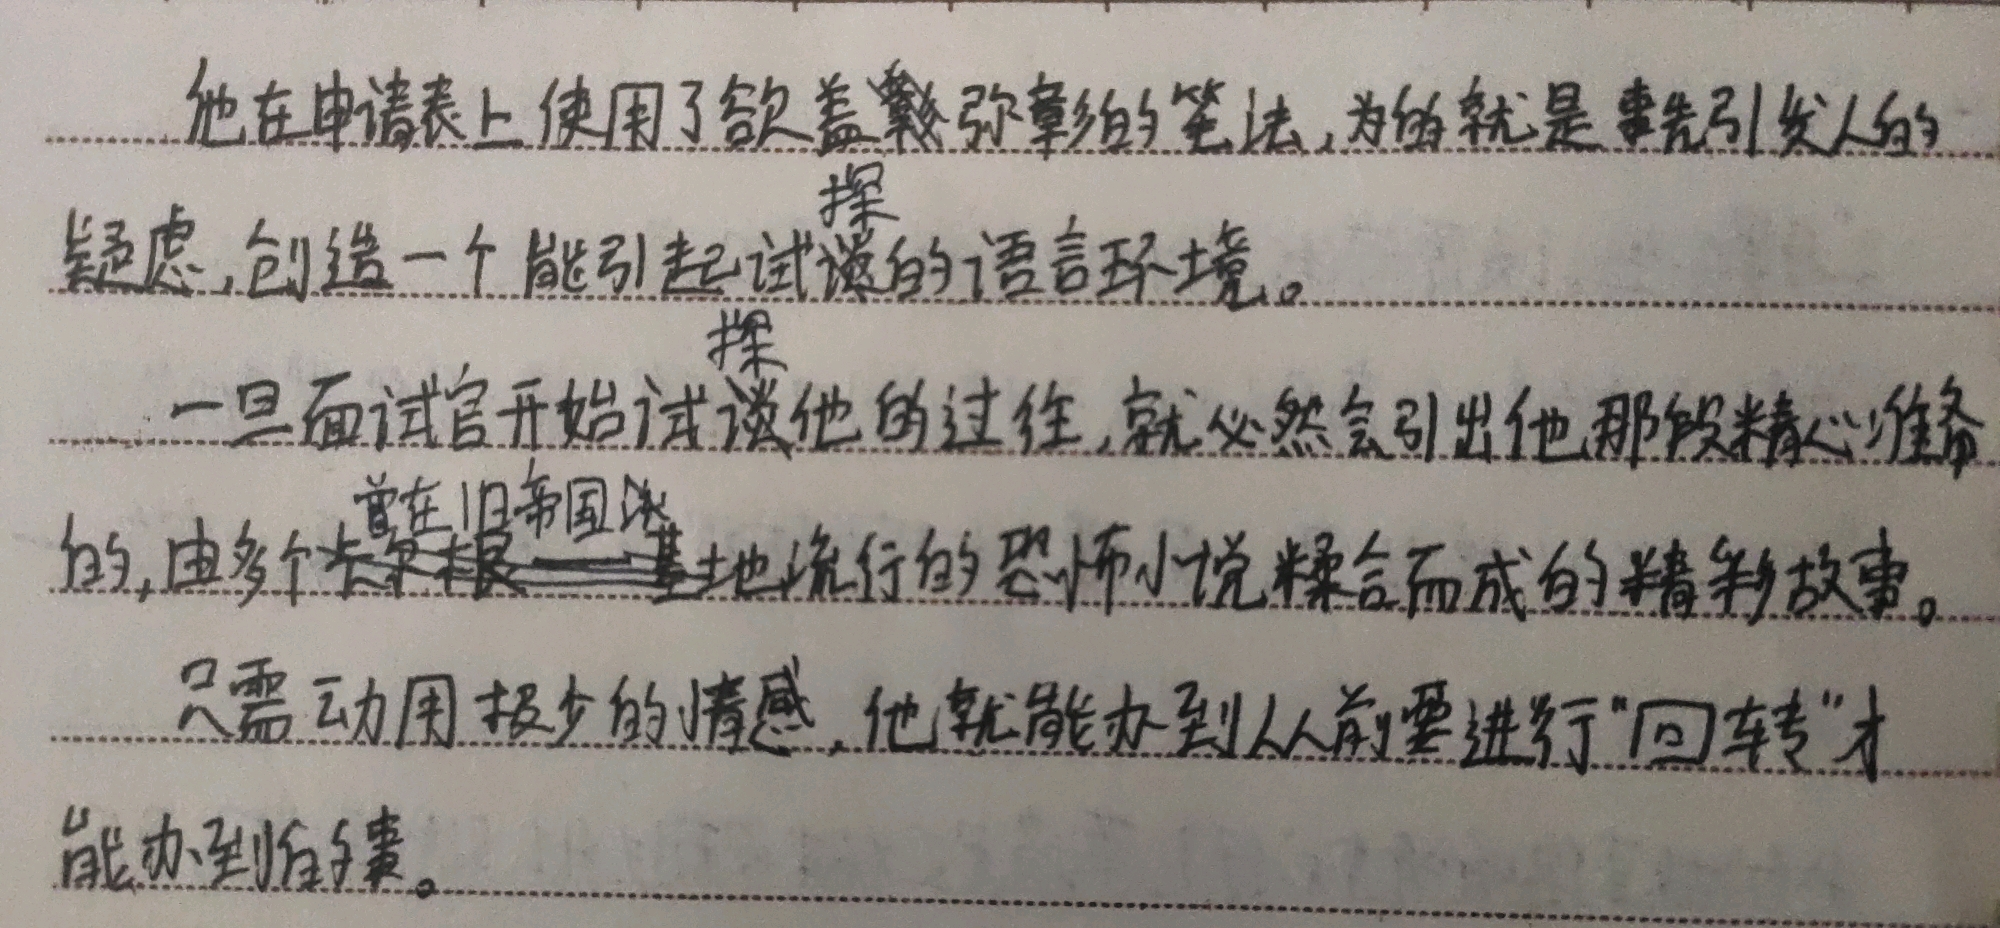 他在申请表上使用了欲盖弥彰的笔法,为的就是事先引发人的
疑虑,创造一个能引起试探的语言环境。
一旦面试官开始试探他的过往,就必然会引出他那段精心准备
的,由多个曾在旧帝国地流行的恐怖小说糅合而成的精彩故事。
只需动用极少的情感,他就能办到从前要进行“回转”才
能办到的事。